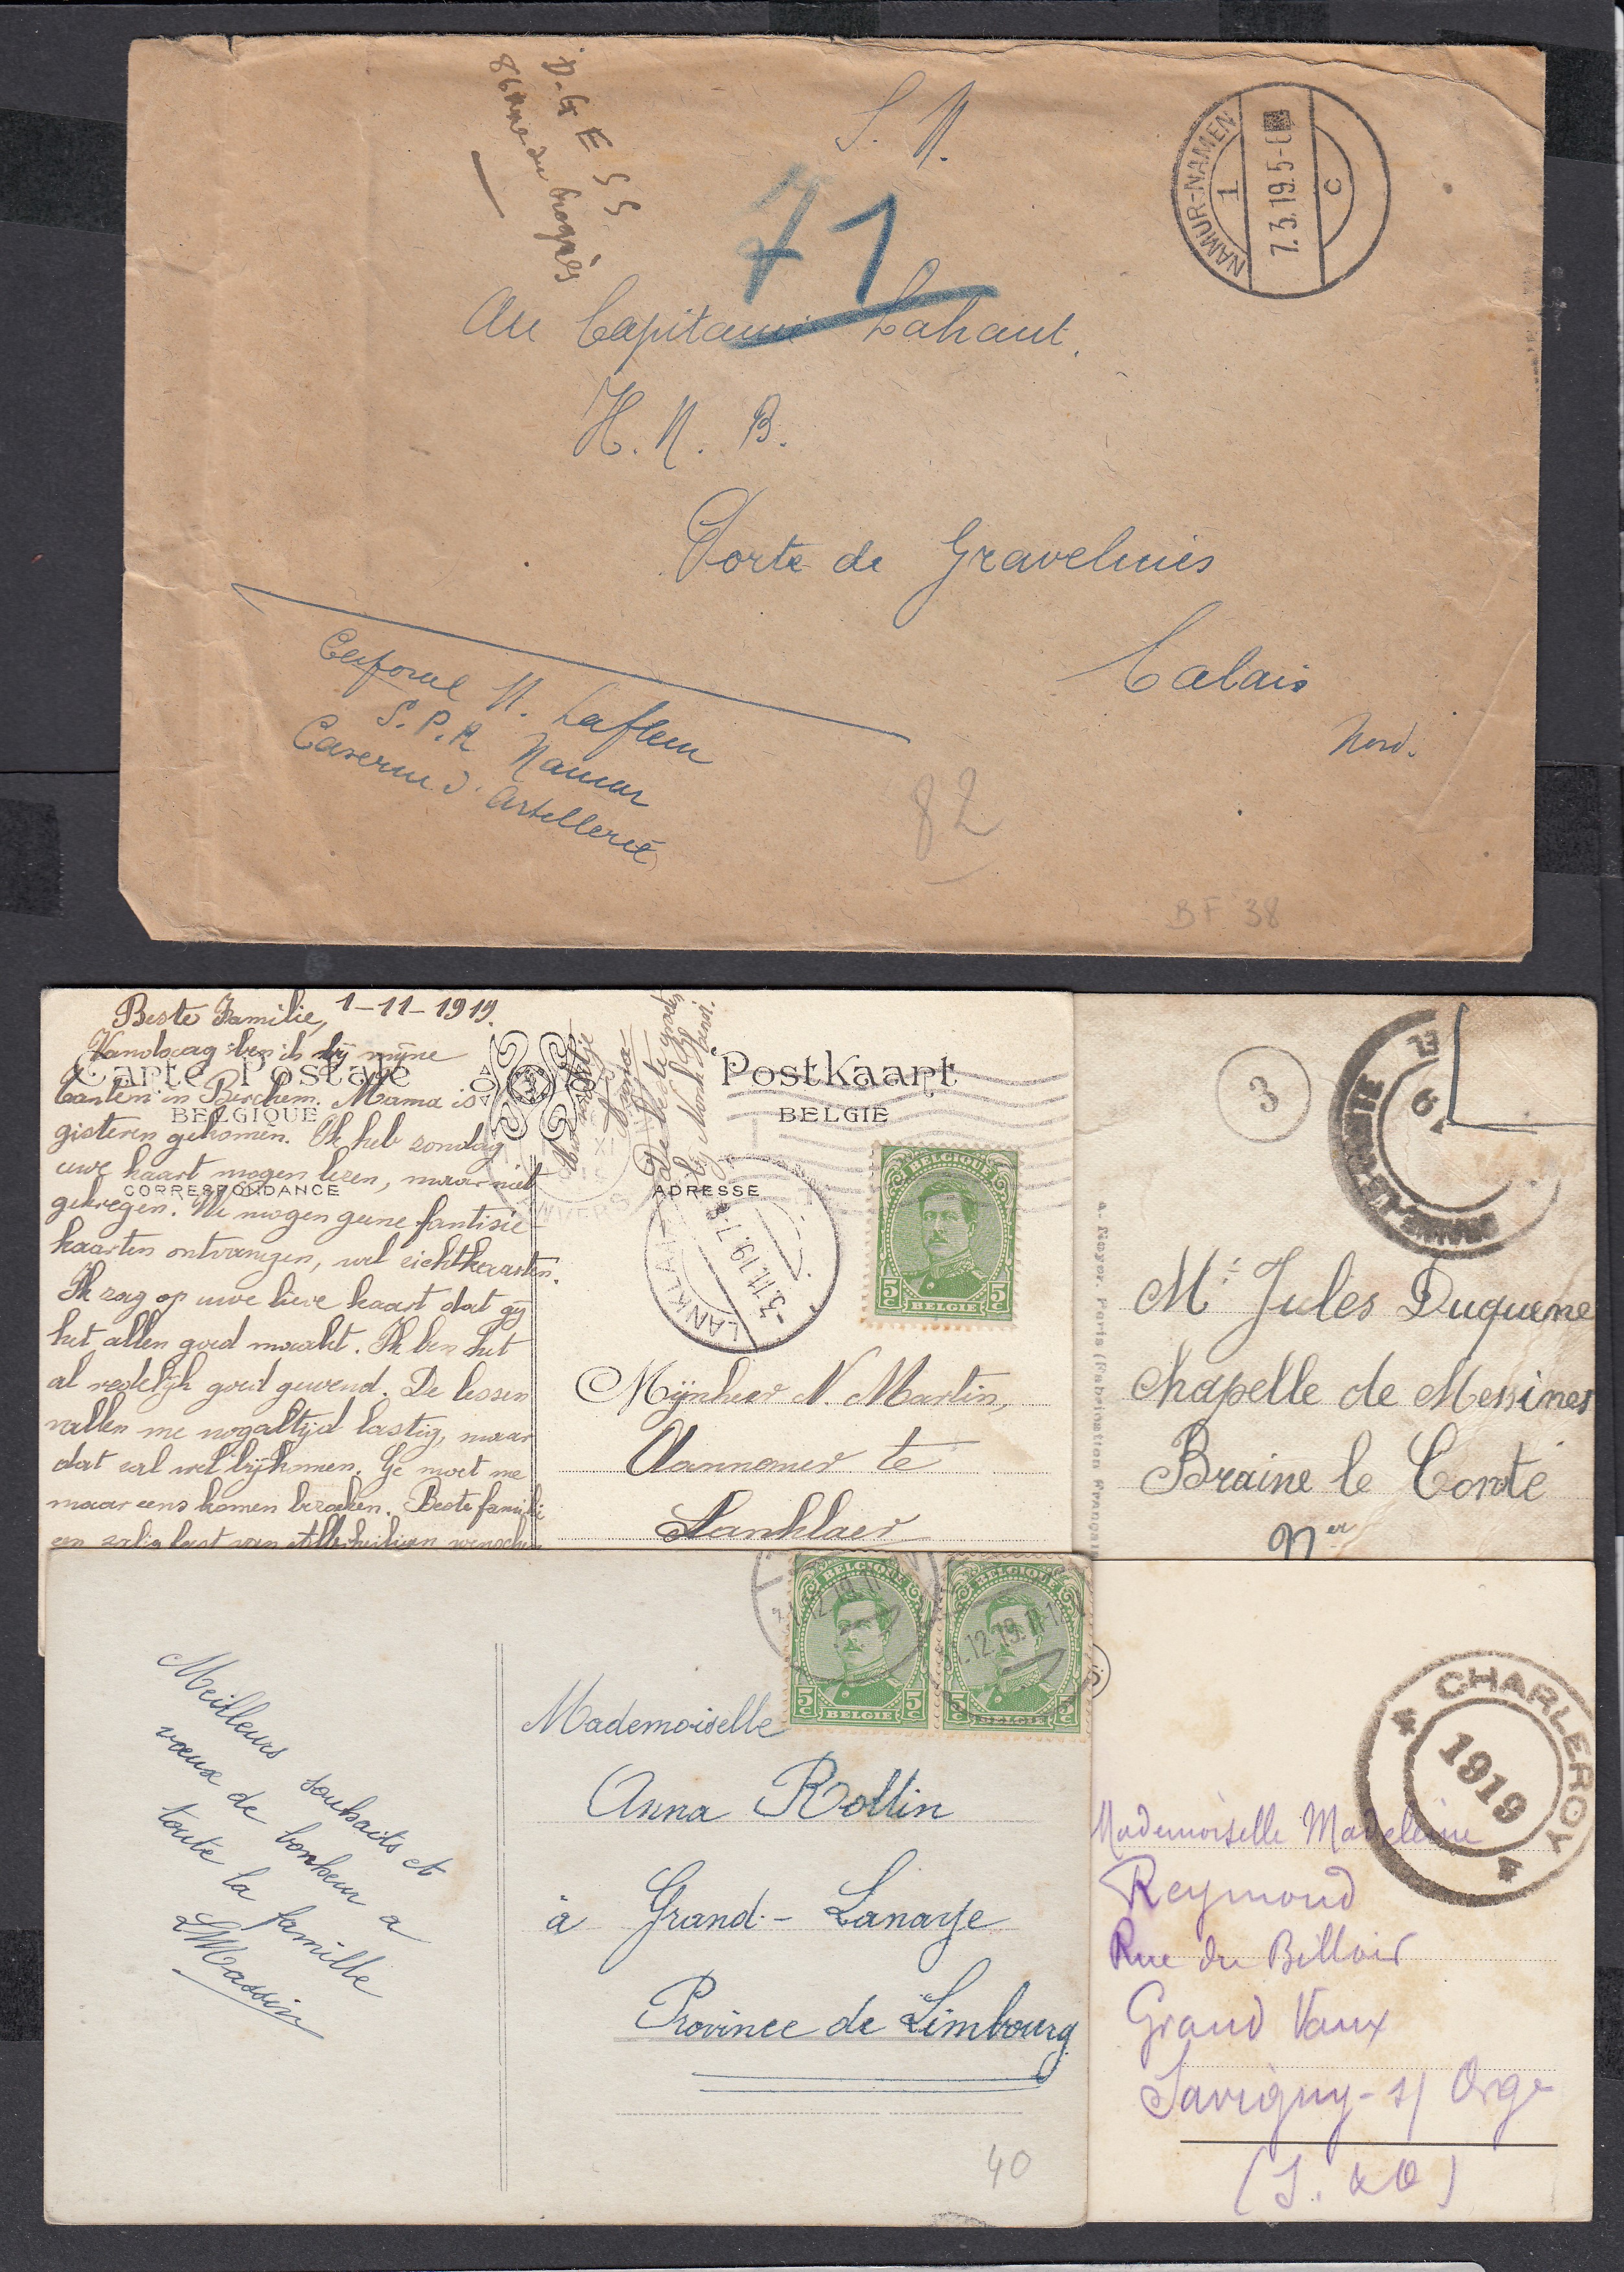 D-G E S S
86 Rue du Progrès
S. M.
71
NAMUR-NAMEN
1
7.3.19.5-6
C
Au Capitaine Lahaut.
H. M. B.
Porte de Gravelines
Calais
Nord.
Caporal M. Lafleur
S.P.R Namur
Caserne d'Artellerie
82
BF 38
Beste Familie, 1-11-1919.
Vandaag ben ik bij mijne
tanten in Berchem. Mama is
gisteren gekomen. Ik heb zondag
uwe kaart mogen lezen, maar niet
gekregen. We mogen geene fantisie
kaarten ontvangen, wel zichtkaarten.
Ik zag op uwe lieve kaart dat gij
het allen goed maakt. Ik ben het
al redelijk goed gewend. De lessen
vallen me nogaltijd lastig, maar
dat zal wel bijkomen. Ge moet me
maar eens komen bezoeken. Beste famili
Carte Postale
BELGIQUE
CORRESPONDANCE
Postkaart
BELGIE
ADRESSE
ANVERS
LANKLAER
-3.11.19.7-8
BELGIQUE
5c 5c
BELGIE
Mijnheer N. Martin,
Aannemer te
Lanklaer
3
BRAINE-LE-COMTE
19
A. Noyer, Paris (Fabrication Française
Mr Jules Duquene
Chapelle de Messines
Braine le Comte
Meilleurs souhaits et
vœux de bonheur a
toute la famille
L Massin
BELGIQUE
5c 5c
BELGIE
BELGIQUE
5c 5c
BELGIE
.12.19.11-12
Mademoiselle
Anna Rollin
à Grand-Lanaye
Province de Limbourg
40
CHARLEROY
4 1919 4
Mademoiselle Madeleine
Reymond
Rue du Billoir
Grand Vaux
Savigny-s/ Orge
(S. & O)